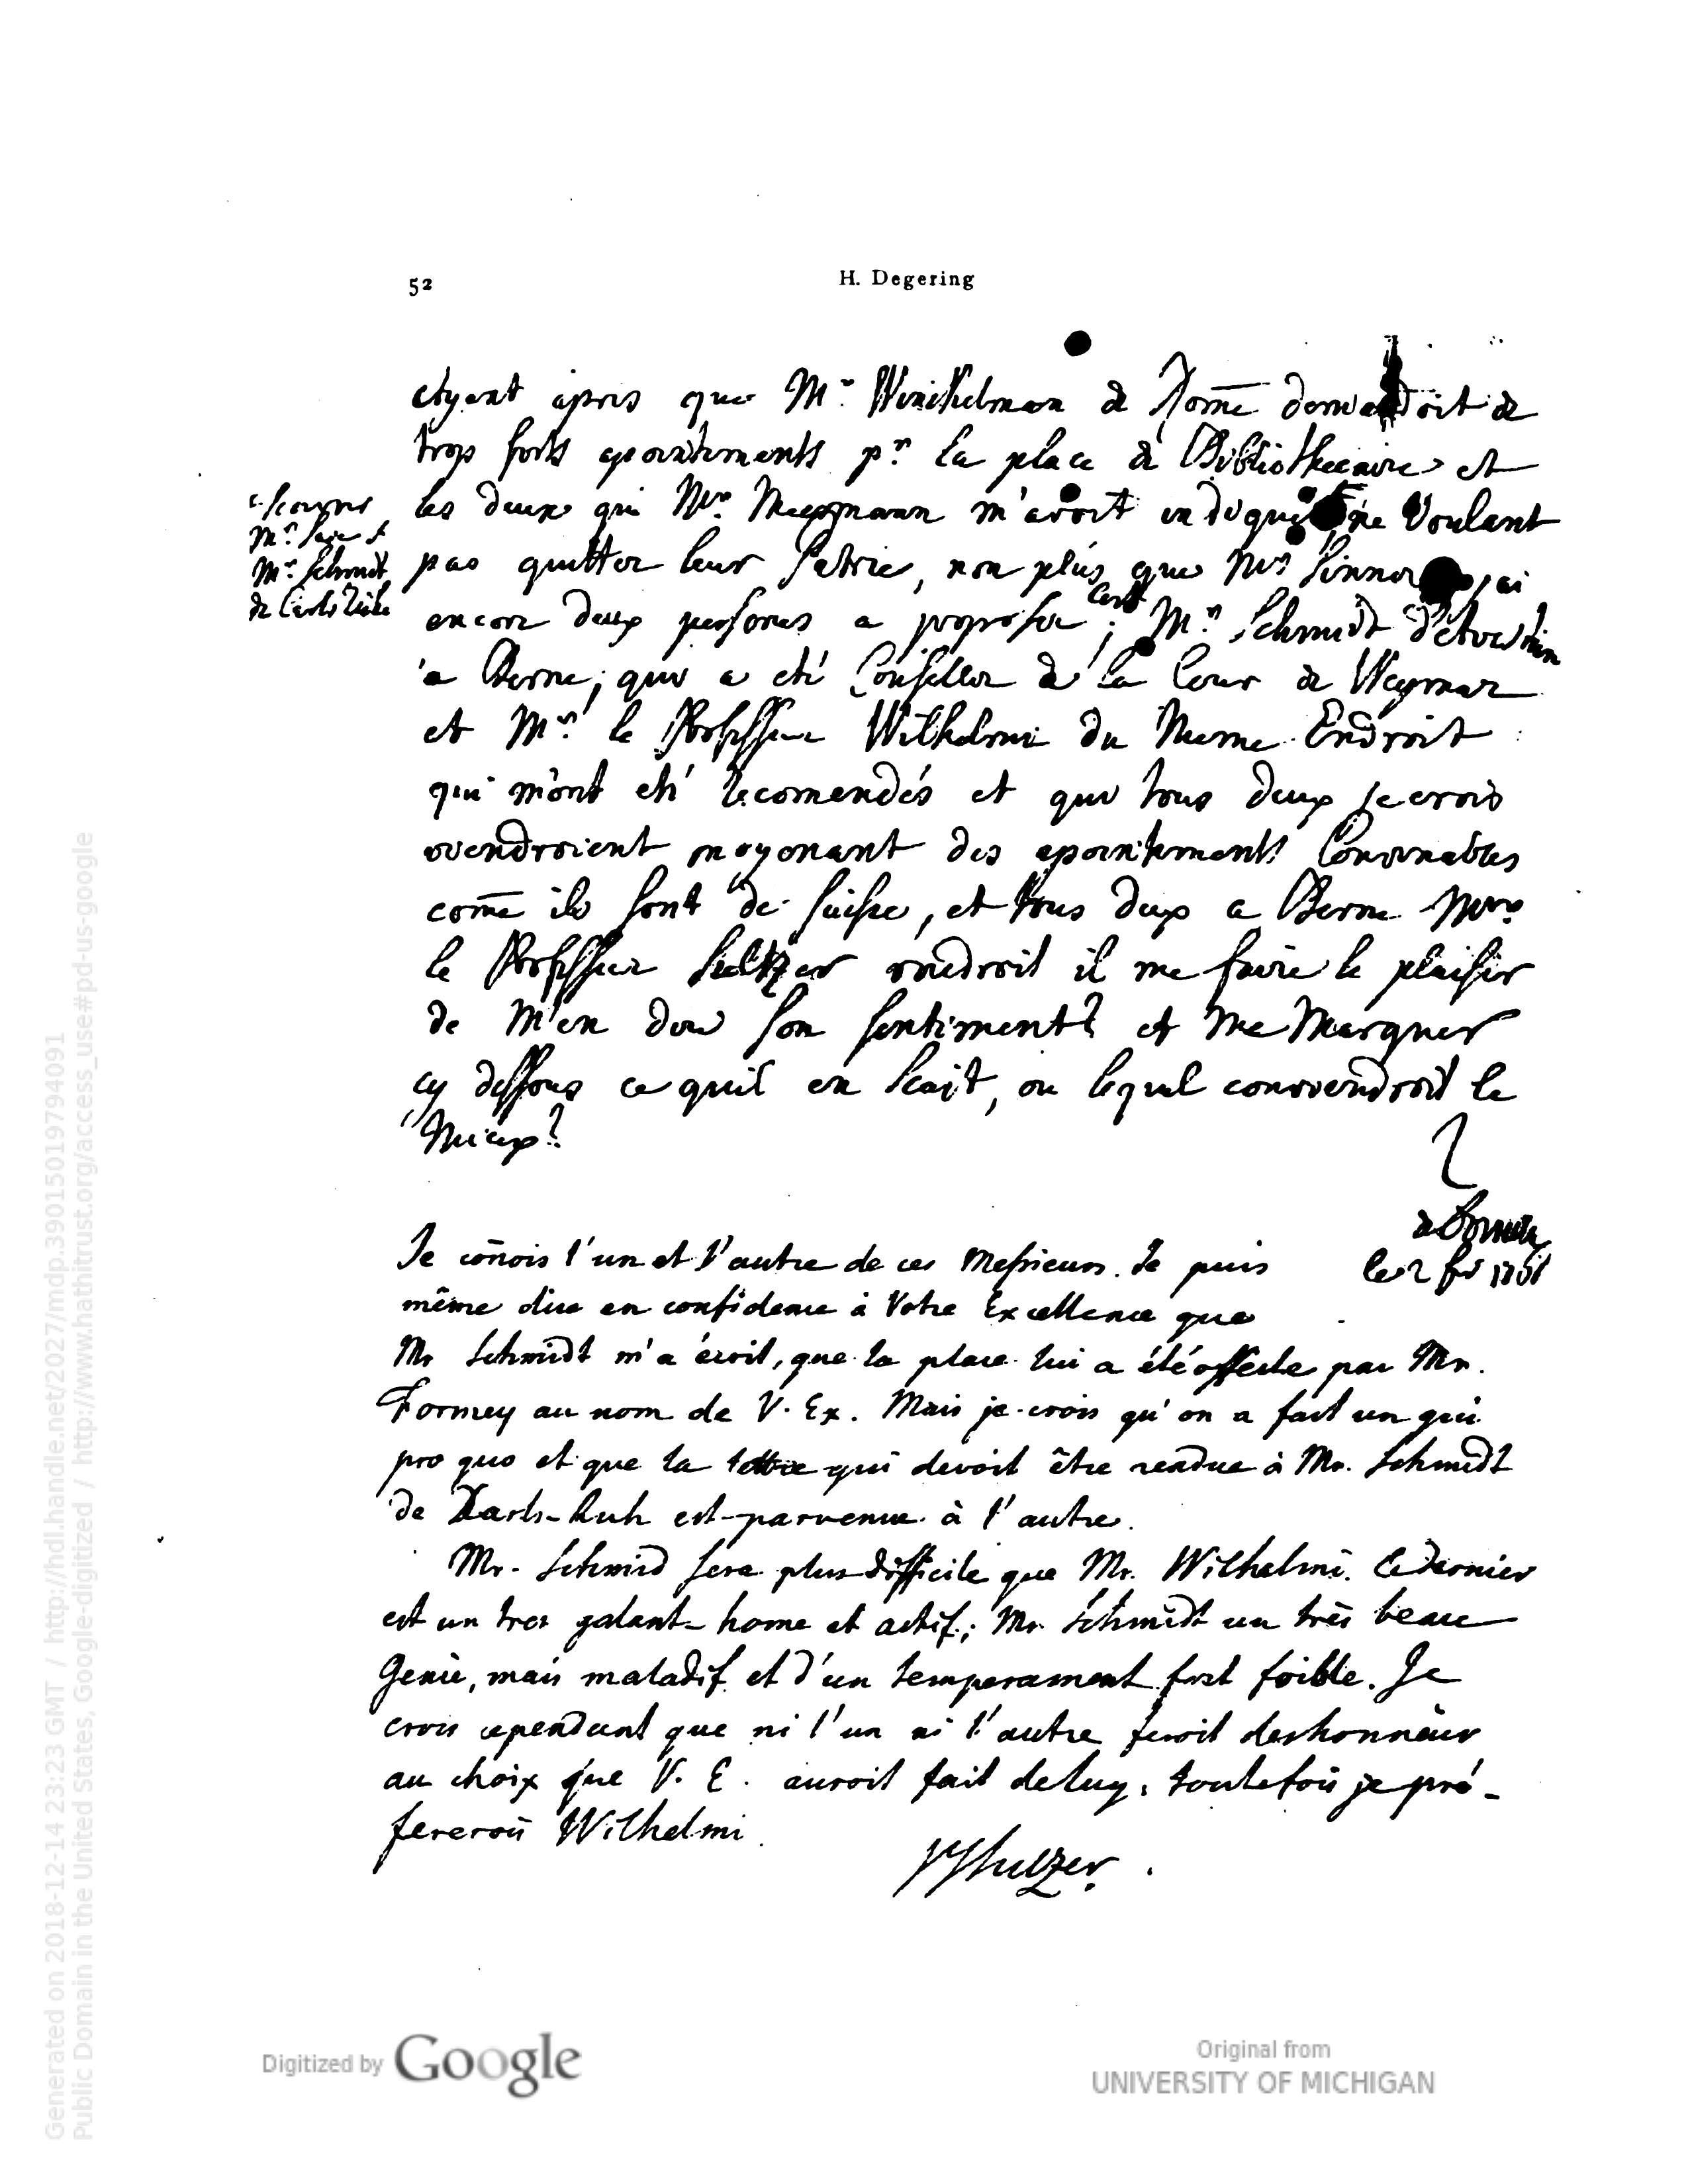 52
H. Degering
Ayant apris que Mr. Winckelman de Rome demandoit de
trop forts apointements pr. la place de Bibliothecaire et
les deux que Mr. m'avoit indiqué ne Voulant
pas quitter leur Patrie, non plus que Mr Sinner j'ai
encore deux persones a proposer; c'est Mr. Schmidt
a Berne, qui a eté Conseller de la Cour de Weymar
et Mr. le Professeur Wilhelmi du Meme Endroit
qui m'ont eté recomendés et que tous deux je crois
viendroient moyenant des apointements Convenables
come ils sont de Suisse, et tous deux a Berne Mr.
le Professeur Sultzer voudroit il me faire le plaisir
de m'en dire son sentiment? et me Marquer
cy dessous ce quil en scait, ou lequel conviendroit le
Mieux?
Mr.
Mr. Schmidt
de
le 2
Je conois l'un et l'autre de ces Messieurs. Je puis
même dire en confidence à Votre Excellence que
Mr Schmidt m'a écrit, que la place lui a été offerte par Mr.
Formey au nom de V. Ex. Mais je crois qu'on a fait un qui
pro quo et que la lettre qui devoit être rendue à Mr. Schmidt
de Karls-Ruh est parvenue à l'autre.
Mr. Schmid sera plus difficile que Mr. Wilhelmi. Ce dernier
est un tres galant-home et actif; Mr. Schmidt un très beau
Genie, mais maladif et d'un temperament fort foible. Je
crois cependant que ni l'un ni l'autre feroit deshonneur
au choix que V. E. auroit fait de luy, toutefois je pré-
fererois Wilhelmi.
Sulzer.
Generated on 2018-12-14 23:23 GMT / http://hdl.handle.net/2027/mdp.39015019794091
Public Domain in the United States, Google-digitized / http://www.hathitrust.org/access_use#pd-us-google
Digitized by Google
Original from
UNIVERSITY OF MICHIGAN